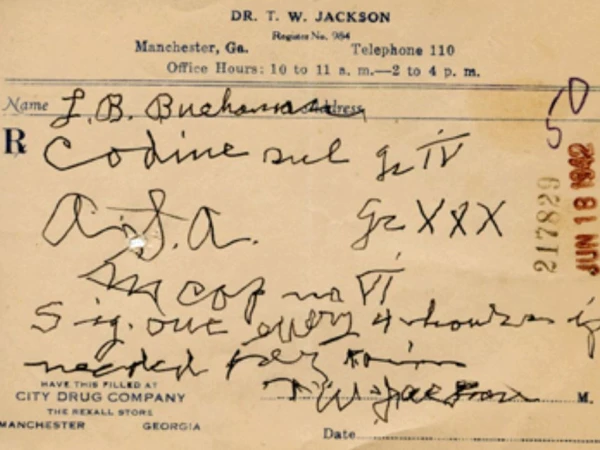 DR. T. W. JACKSON
Register No. 984
Manchester, Ga. Telephone 110
Office Hours: 10 to 11 a. m.—2 to 4 p. m.
Name L. B. Buchanan Address
50
R Codine sul gr IV
A.S.A. gr XXX
M cap no VI
Sig. one every 4 hours if
needed for pain
T W Jackson M.
217829
JUN 18 1942
HAVE THIS FILLED AT
CITY DRUG COMPANY
THE REXALL STORE
MANCHESTER GEORGIA
Date